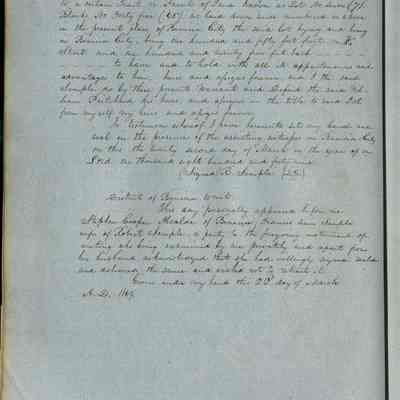 to a certain Tract or Parcel of Land known as Lot No Seven (7)
Block No Forty five (45) as laid down and numbered in
the present plan of Benicia City the said lot lying and being
in Benicia City, being one hundred and fifty feet front
Street and one hundred and twenty five feet back
to have and to hold with all the appurtenances and
advantages to him, heirs and assigns forever and I the said
Semple, do by these presents Warrant and Defend the said
Pritchard his heirs, and assigns in the title to said Lot
from myself my heirs and assigns forever.
In testimony whereof I have hereunto set my hand and
seal in the presence of the attesting witnesses in Benicia City
on this the twenty second day of March in the year of our
Lord, one thousand eight hundred and forty nine
(Signed R. Semple (LS)
District of Benicia to wit.
This day personally appeared before me
Stephen Cooper Alcalde of Benicia, Frances Ann Semple
wife of Robert Semple, a party to the foregoing instrument of
writing she being examined by me privately and apart from
her husband acknowledged that she had willingly signed sealed
and delivered the same and wished not to retract it.
Given under my hand this 22d day of March
A.D. 1849